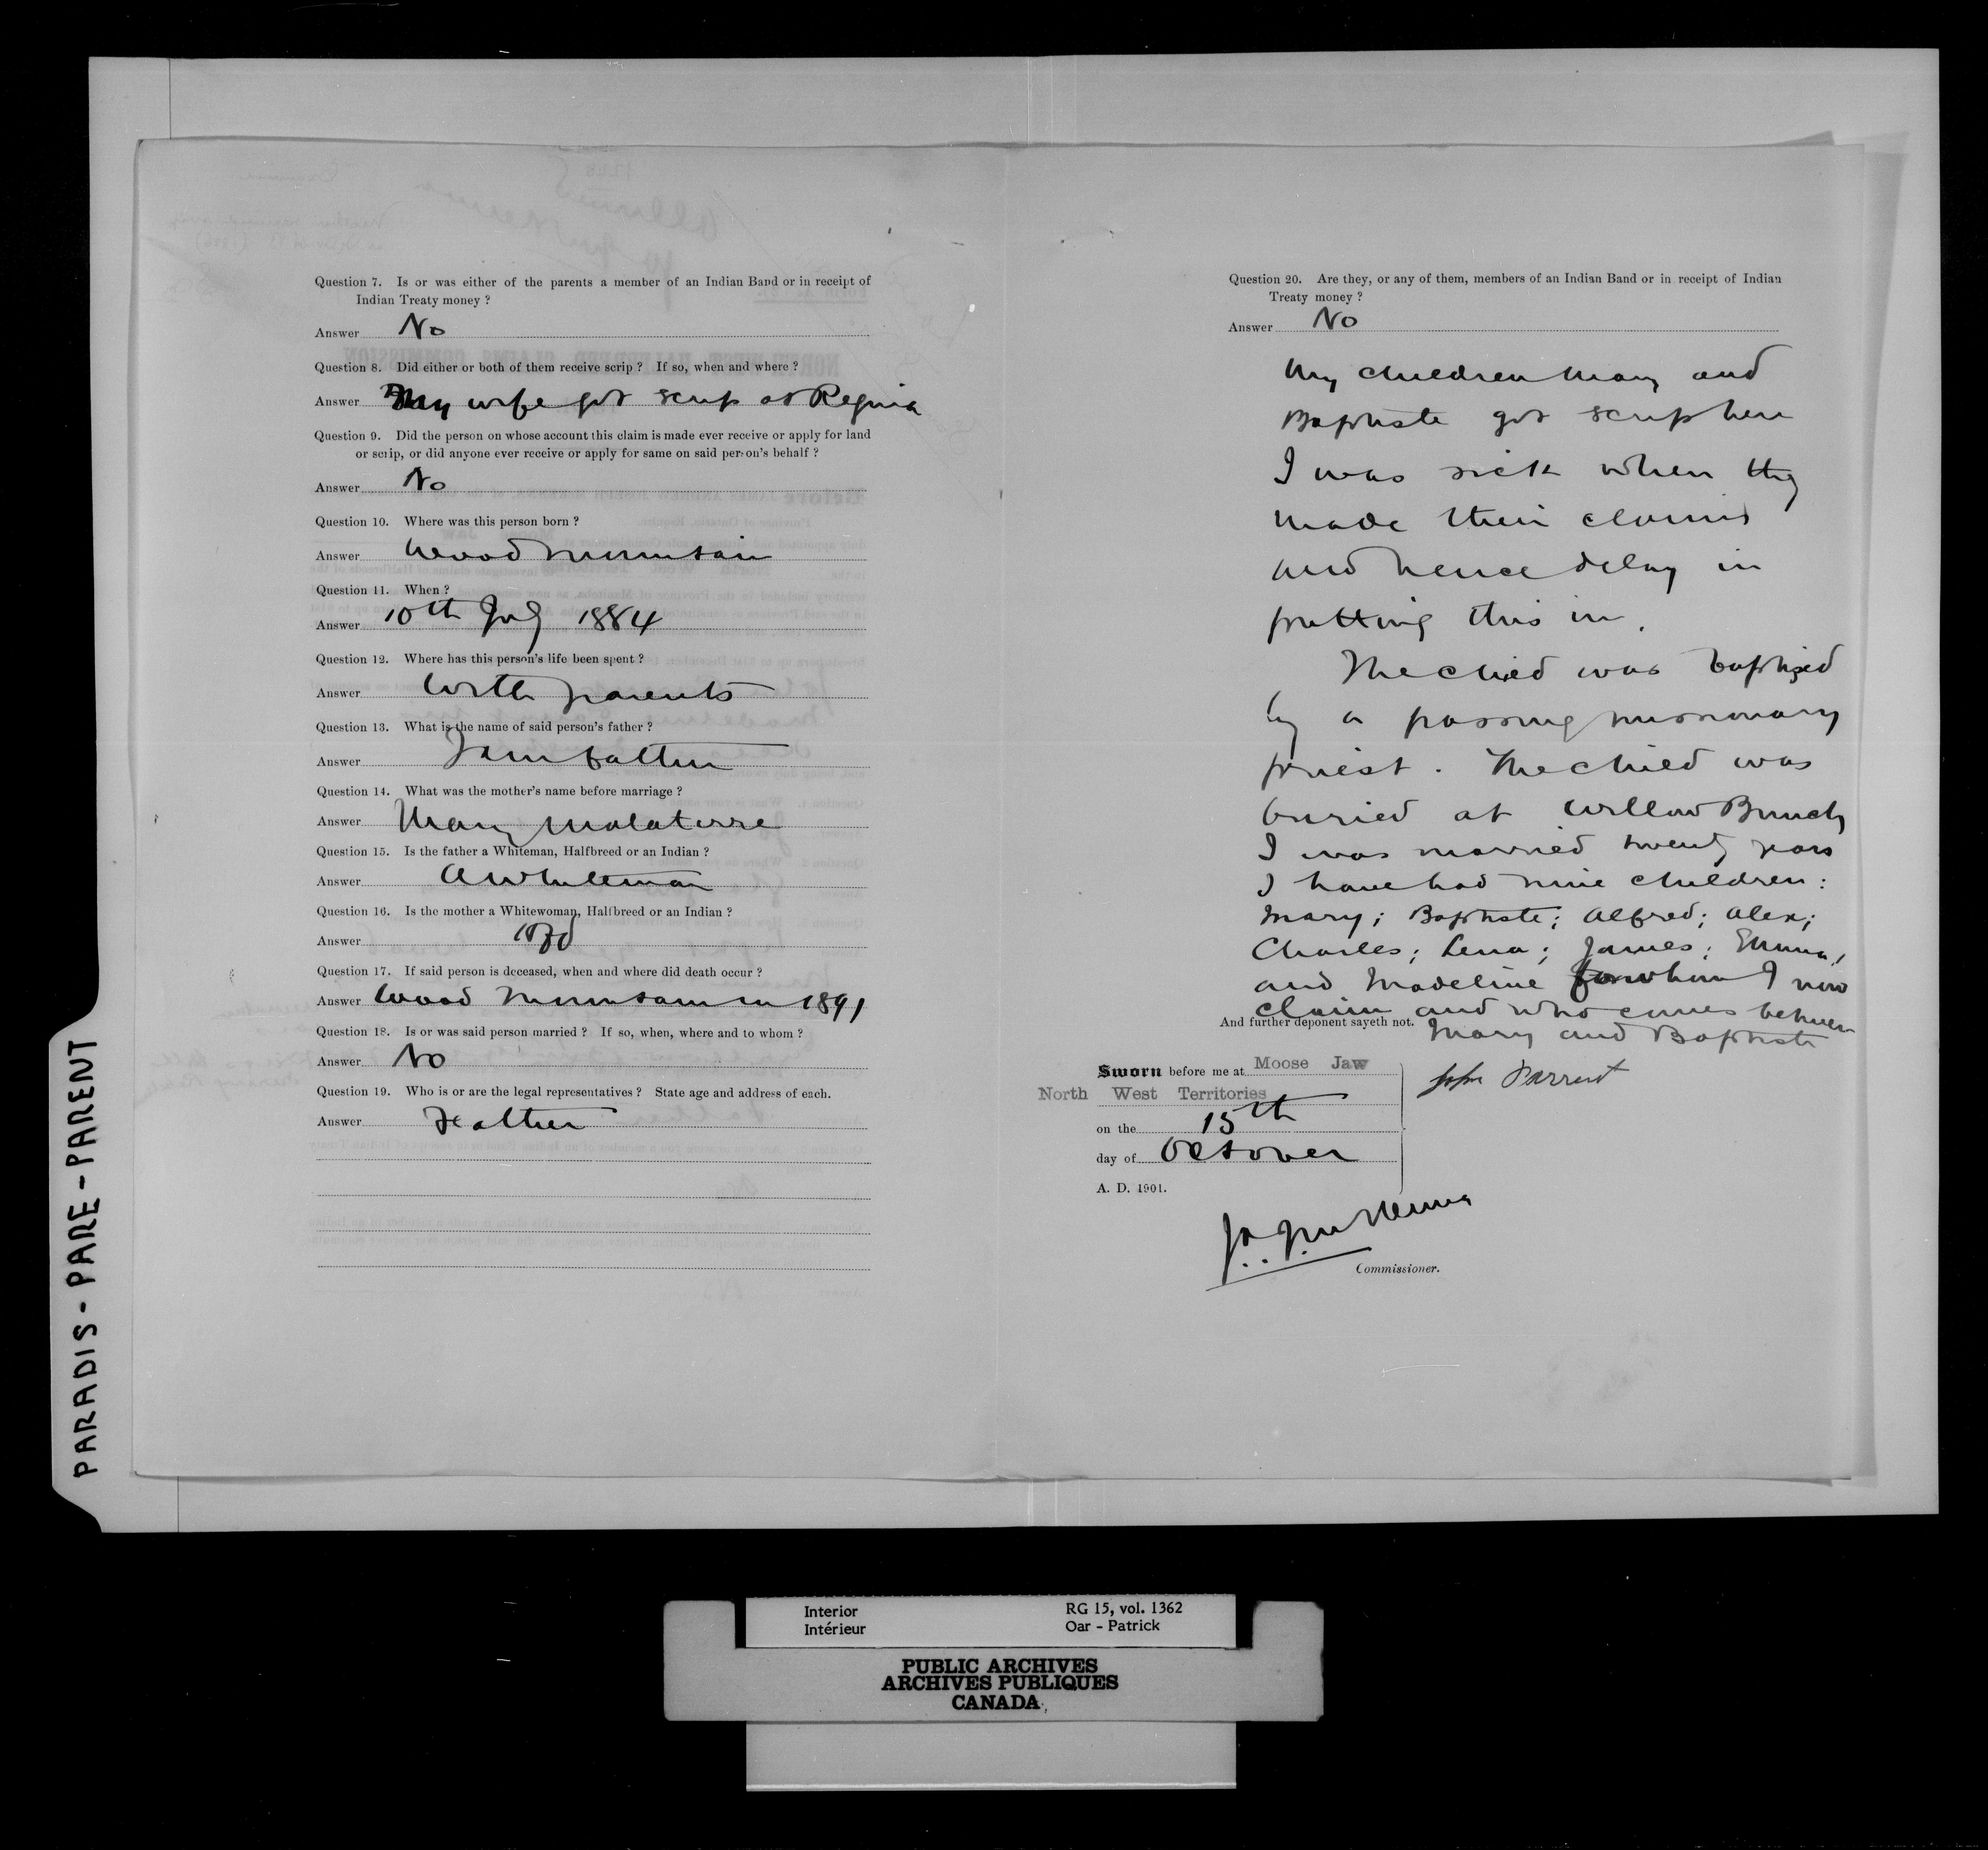 Question 7. Is or was either of the parents a member of an Indian Band or in receipt of
Indian Treaty money ?
Answer No
Question 8. Did either or both of them receive scrip ? If so, when and where ?
Answer My wife got scrip at Regina
Question 9. Did the person on whose account this claim is made ever receive or apply for land
or scrip, or did anyone ever receive or apply for same on said person's behalf ?
Answer No
Question 10. Where was this person born ?
Answer Wood Mountain
Question 11. When ?
Answer 10th July 1884
Question 12. Where has this person's life been spent ?
Answer With parents
Question 13. What is the name of said person's father ?
Answer I am father
Question 14. What was the mother's name before marriage ?
Answer Mary Malaterre
Question 15. Is the father a Whiteman, Halfbreed or an Indian ?
Answer A Whiteman
Question 16. Is the mother a Whitewoman, Halfbreed or an Indian ?
Answer
Question 17. If said person is deceased, when and where did death occur ?
Answer Wood Mountain in 1891
Question 18. Is or was said person married ? If so, when, where and to whom ?
Answer No
Question 19. Who is or are the legal representatives ? State age and address of each.
Answer Father
Question 20. Are they, or any of them, members of an Indian Band or in receipt of Indian
Treaty money ?
Answer No
My children Mary and
Baptiste got scrip here
I was sick when they
made their claims
and hence delay in
putting this in.
The child was baptized
by a passing missionary
priest. The child was
buried at Willow Bunch
I was married twenty years
I have had nine children:
Mary; Baptiste; Alfred; Alex;
Charles; Lena; James; Emma;
and Madeline for whom I now
claim and who comes between
And further deponent sayeth not. Mary and Baptiste
Sworn before me at Moose Jaw
North West Territories
on the 15th
day of October
A. D. 1901.
John Parrent
Commissioner.
PARADIS - PARE - PARENT
Interior RG 15, vol. 1362
Intérieur Oar - Patrick
PUBLIC ARCHIVES
ARCHIVES PUBLIQUES
CANADA